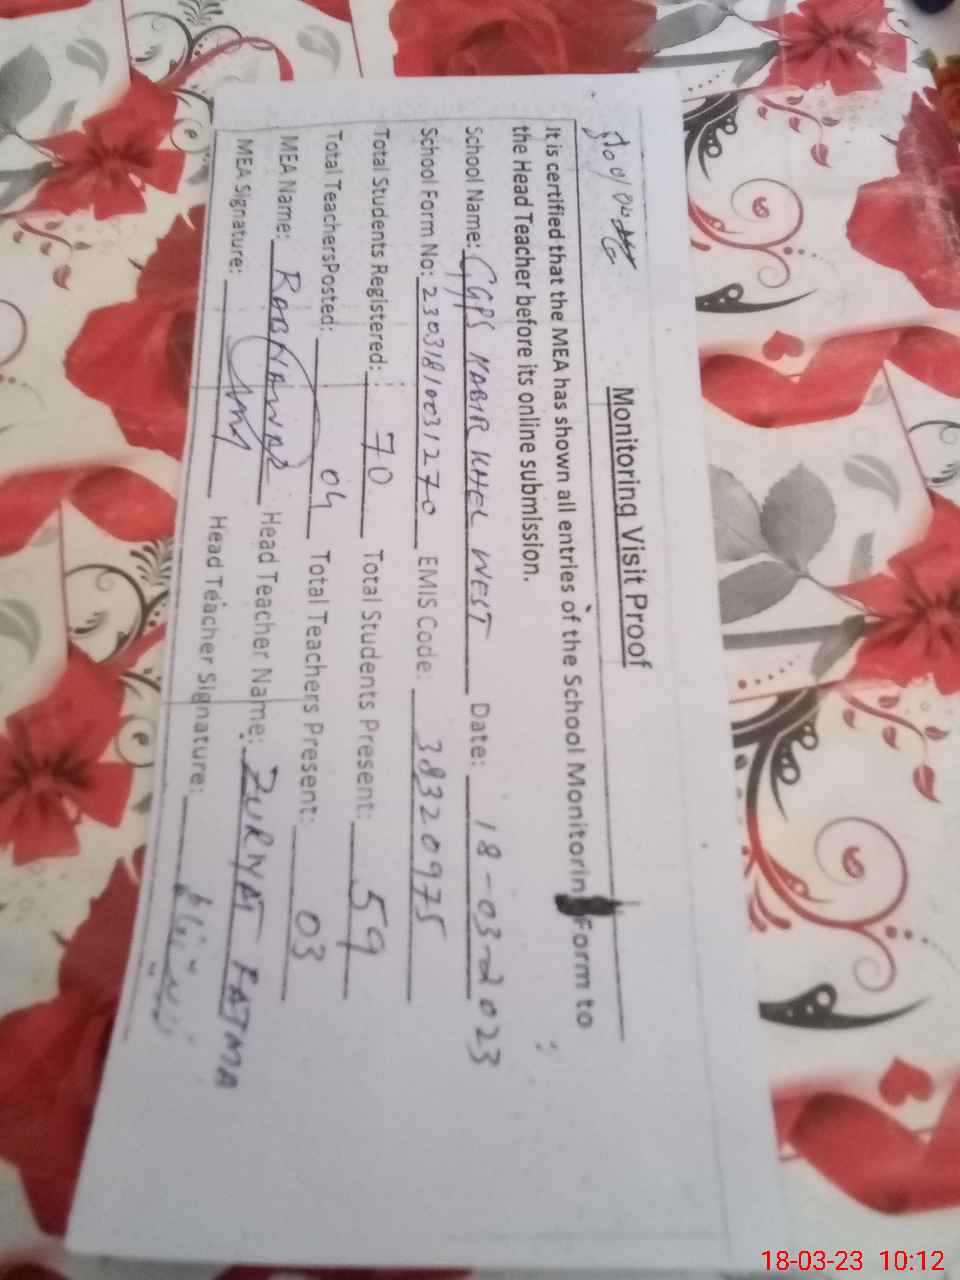 Monitoring Visit Proof
It is certified that the MEA has shown all entries of the School Monitorin Form to
the Head Teacher before its online submission.
School Name: GGPS KABIR KHEL WEST Date: 18-03-2023
School Form No: 23031810031270 EMIS Code: 38320975
Total Students Registered: 70 Total Students Present: 59
Total TeachersPosted: 04 Total Teachers Present: 03
MEA Name: RAB NAWAZ Head Teacher Name: ZURNAT FATMA
MEA Signature: Head Teacher Signature:
18-03-23 10:12